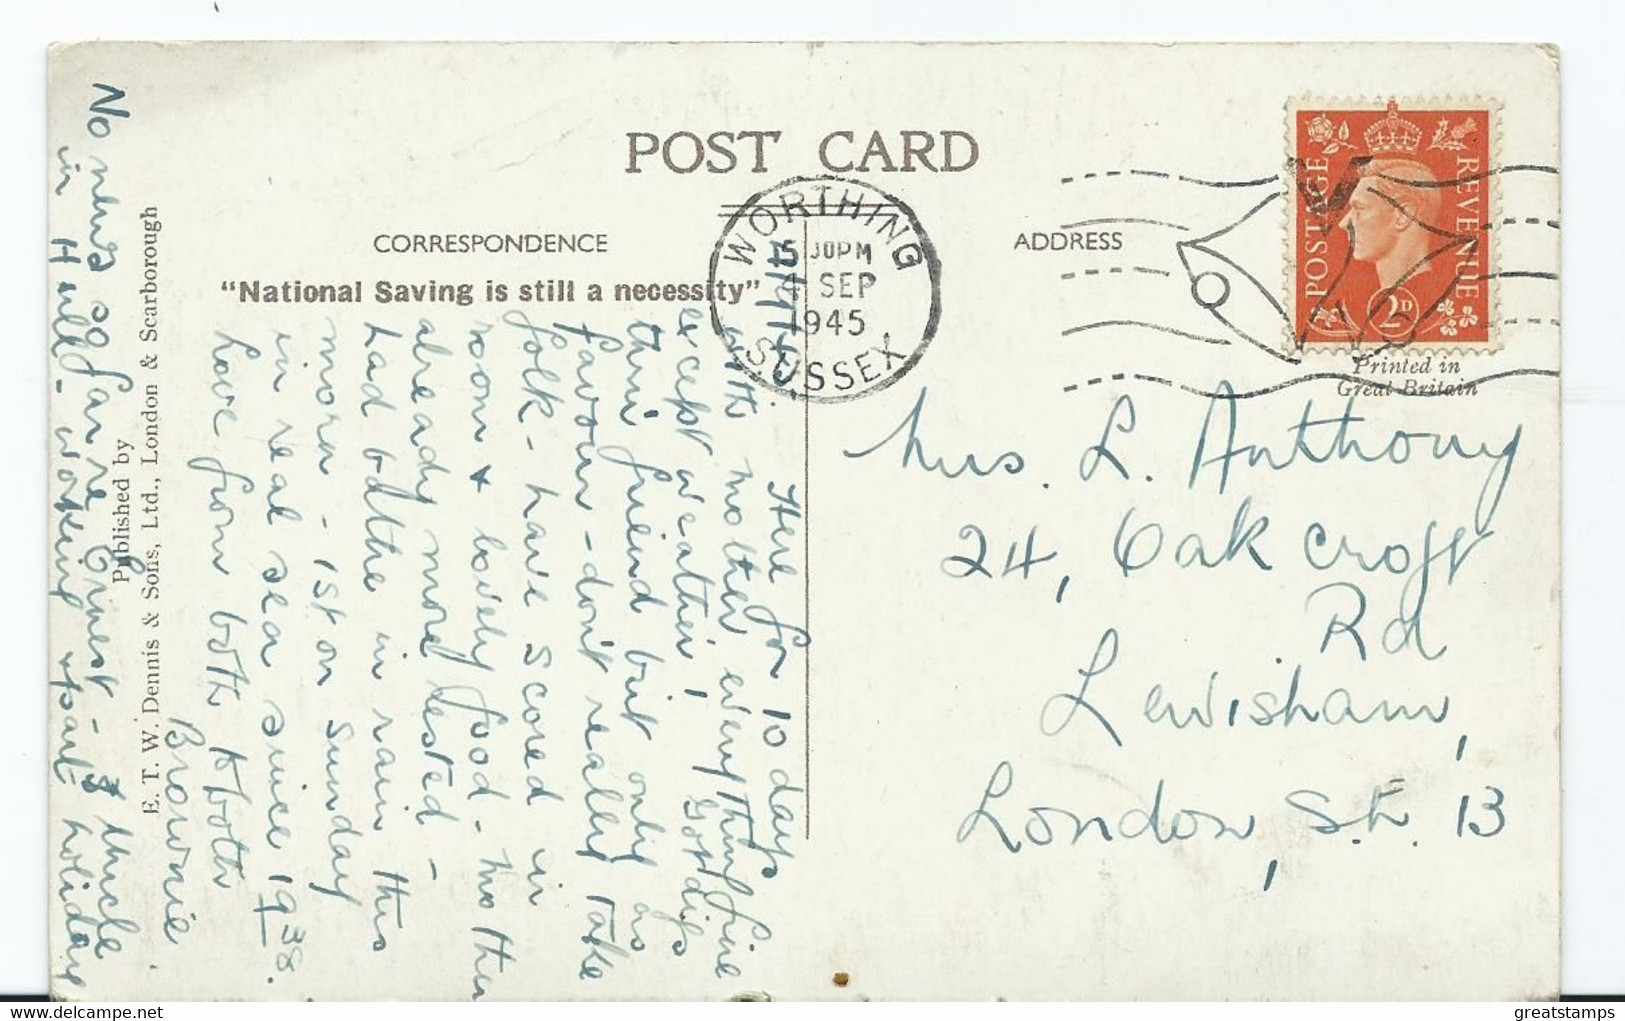 POST CARD
CORRESPONDENCE
ADDRESS
"National Saving is still a necessity"
WORTHING
5 30PM
4 SEP
1945
SUSSEX
POSTAGE
REVENUE
2D
Printed in
Great Britain
Mrs. L. Anthony
24, Oak Croft
Rd
Lewisham,
London, S.E. 13
4/9/45
Here for 10 days
with mother, everything fine
except weather! Gor digs
thro' friend but only as
favour - don't really take
folk - have scored in
room & lovely food - mother
already more rested -
had bathe in rain this
morn - 1st on Sunday
in real sea since 1938.
Love from both to both
Brownie
No news so far re Ernest - Uncle
in Hull - working apart holiday
Published by
E. T. W. Dennis & Sons, Ltd., London & Scarborough
greatstamps